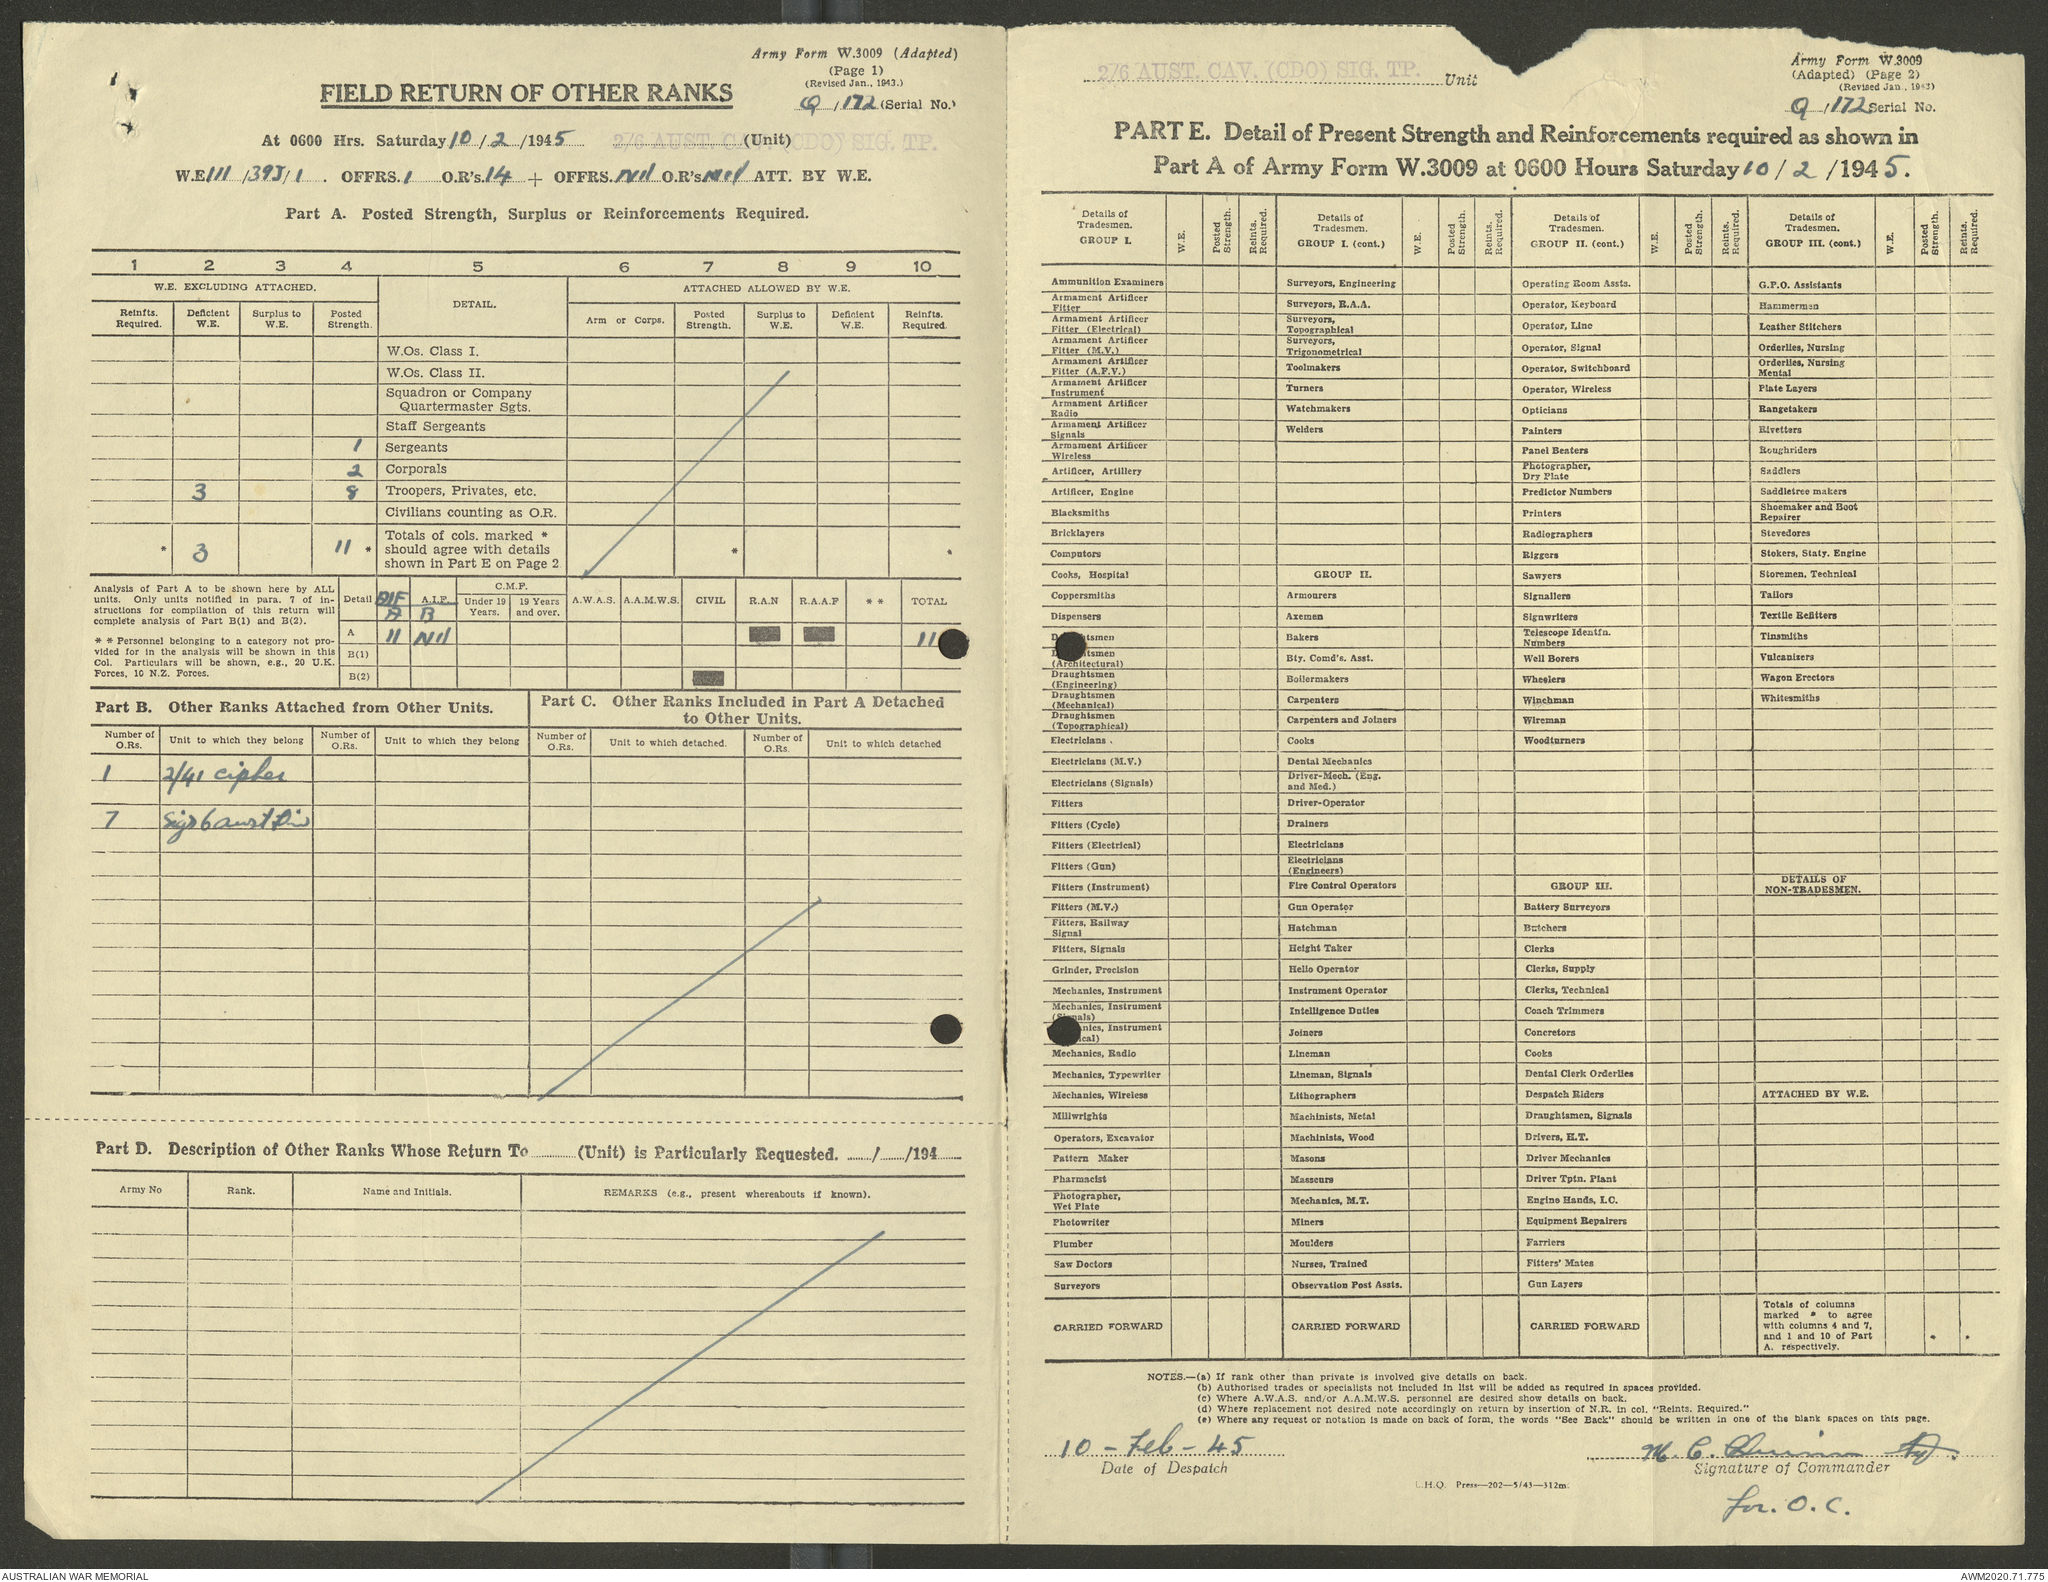 Army Form W.3009 (Adapted)
(Page 1)
(Revised Jan., 1943.)
FIELD RETURN OF OTHER RANKS
Q/172 (Serial No.)
At 0600 Hrs. Saturday 10/2/1945 2/6 AUST. CAV. (CDO) SIG. TP. (Unit)
W.E. 111/393/1. OFFRS. 1 O.R's. 14 + OFFRS. Nil O.R's Nil ATT. BY W.E.
Part A. Posted Strength, Surplus or Reinforcements Required.
1 2 3 4 5 6 7 8 9 10
W.E. EXCLUDING ATTACHED. DETAIL. ATTACHED ALLOWED BY W.E.
Reinfts. Required. Deficient W.E. Surplus to W.E. Posted Strength. Arm or Corps. Posted Strength. Surplus to W.E. Deficient W.E. Reinfts. Required.
W.Os. Class I.
W.Os. Class II.
Squadron or Company
Quartermaster Sgts.
Staff Sergeants
1 Sergeants
2 Corporals
3 8 Troopers, Privates, etc.
Civilians counting as O.R.
* 3 11 * Totals of cols. marked * * *
should agree with details
shown in Part E on Page 2
Analysis of Part A to be shown here by ALL
units. Only units notified in para. 7 of in-
structions for compilation of this return will
complete analysis of Part B(1) and B(2).
* * Personnel belonging to a category not pro-
vided for in the analysis will be shown in this
Col. Particulars will be shown, e.g., 20 U.K.
Forces, 10 N.Z. Forces.
Detail AIF A A.I.F. B C.M.F. Under 19 Years. 19 Years and over. A.W.A.S. A.A.M.W.S. CIVIL R.A.N R.A.A.F * * TOTAL
A 11 Nil 11
B(1)
B(2)
Part B. Other Ranks Attached from Other Units.
Part C. Other Ranks Included in Part A Detached
to Other Units.
Number of O.Rs. Unit to which they belong Number of O.Rs. Unit to which they belong Number of O.Rs. Unit to which detached. Number of O.Rs. Unit to which detached
1 2/41 cipher
7 Sigs 6 aust Div
Part D. Description of Other Ranks Whose Return To (Unit) is Particularly Requested. / /194
Army No Rank. Name and Initials. REMARKS (e.g., present whereabouts if known).
2/6 AUST. CAV. (CDO) SIG. TP. Unit
Army Form W.3009
(Adapted) (Page 2)
(Revised Jan., 1943)
Q/172 Serial No.
PART E. Detail of Present Strength and Reinforcements required as shown in
Part A of Army Form W.3009 at 0600 Hours Saturday 10/2/1945.
Details of Tradesmen. GROUP I. W.E. Posted Strength. Reints. Required.
Details of Tradesmen. GROUP I. (cont.) W.E. Posted Strength. Reints. Required.
Details of Tradesmen. GROUP II. (cont.) W.E. Posted Strength. Reints. Required.
Details of Tradesmen. GROUP III. (cont.) W.E. Posted Strength. Reints. Required.
Ammunition Examiners
Armament Artificer Fitter
Armament Artificer Fitter (Electrical)
Armament Artificer Fitter (M.V.)
Armament Artificer Fitter (A.F.V.)
Armament Artificer Instrument
Armament Artificer Radio
Armament Artificer Signals
Armament Artificer Wireless
Artificer, Artillery
Artificer, Engine
Blacksmiths
Bricklayers
Computors
Cooks, Hospital
Coppersmiths
Dispensers
D tsmen
D tsmen (Architectural)
Draughtsmen (Engineering)
Draughtsmen (Mechanical)
Draughtsmen (Topographical)
Electricians.
Electricians (M.V.)
Electricians (Signals)
Fitters
Fitters (Cycle)
Fitters (Electrical)
Fitters (Gun)
Fitters (Instrument)
Fitters (M.V.)
Fitters, Railway Signal
Fitters, Signals
Grinder, Precision
Mechanics, Instrument
Mechanics, Instrument (Signals)
nics, Instrument ical)
Mechanics, Radio
Mechanics, Typewriter
Mechanics, Wireless
Millwrights
Operators, Excavator
Pattern Maker
Pharmacist
Photographer, Wet Plate
Photowriter
Plumber
Saw Doctors
Surveyors
CARRIED FORWARD
Surveyors, Engineering
Surveyors, R.A.A.
Surveyors, Topographical
Surveyors, Trigonometrical
Toolmakers
Turners
Watchmakers
Welders
GROUP II.
Armourers
Axemen
Bakers
Bty. Comd's. Asst.
Boilermakers
Carpenters
Carpenters and Joiners
Cooks
Dental Mechanics
Driver-Mech. (Eng. and Med.)
Driver-Operator
Drainers
Electricians
Electricians (Engineers)
Fire Control Operators
Gun Operator
Hatchman
Height Taker
Helio Operator
Instrument Operator
Intelligence Duties
Joiners
Lineman
Lineman, Signals
Lithographers
Machinists, Metal
Machinists, Wood
Masons
Masseurs
Mechanics, M.T.
Miners
Moulders
Nurses, Trained
Observation Post Assts.
CARRIED FORWARD
Operating Room Assts.
Operator, Keyboard
Operator, Line
Operator, Signal
Operator, Switchboard
Operator, Wireless
Opticians
Painters
Panel Beaters
Photographer, Dry Plate
Predictor Numbers
Printers
Radiographers
Riggers
Sawyers
Signallers
Signwriters
Telescope Identfn. Numbers
Well Borers
Wheelers
Winchman
Wireman
Woodturners
GROUP III.
Battery Surveyors
Butchers
Clerks
Clerks, Supply
Clerks, Technical
Coach Trimmers
Concretors
Cooks
Dental Clerk Orderlies
Despatch Riders
Draughtsmen, Signals
Drivers, H.T.
Driver Mechanics
Driver Tptn. Plant
Engine Hands, I.C.
Equipment Repairers
Farriers
Fitters' Mates
Gun Layers
CARRIED FORWARD
G.P.O. Assistants
Hammermen
Leather Stitchers
Orderlies, Nursing
Orderlies, Nursing Mental
Plate Layers
Rangetakers
Rivetters
Roughriders
Saddlers
Saddletree makers
Shoemaker and Boot Repairer
Stevedores
Stokers, Staty. Engine
Storemen, Technical
Tailors
Textile Refitters
Tinsmiths
Vulcanizers
Wagon Erectors
Whitesmiths
DETAILS OF NON-TRADESMEN.
ATTACHED BY W.E.
Totals of columns
marked * to agree
with columns 4 and 7,
and 1 and 10 of Part
A. respectively. * *
NOTES.—(a) If rank other than private is involved give details on back.
(b) Authorised trades or specialists not included in list will be added as required in spaces provided.
(c) Where A.W.A.S. and/or A.A.M.W.S. personnel are desired show details on back.
(d) Where replacement not desired note accordingly on return by insertion of N.R. in col. "Reints. Required."
(e) Where any request or notation is made on back of form, the words "See Back" should be written in one of the blank spaces on this page.
10 - Feb - 45
Date of Despatch
M. C.
Signature of Commander
for. O. C.
L.H.Q. Press—202—5/43—312m.
AUSTRALIAN WAR MEMORIAL
AWM2020.71.775